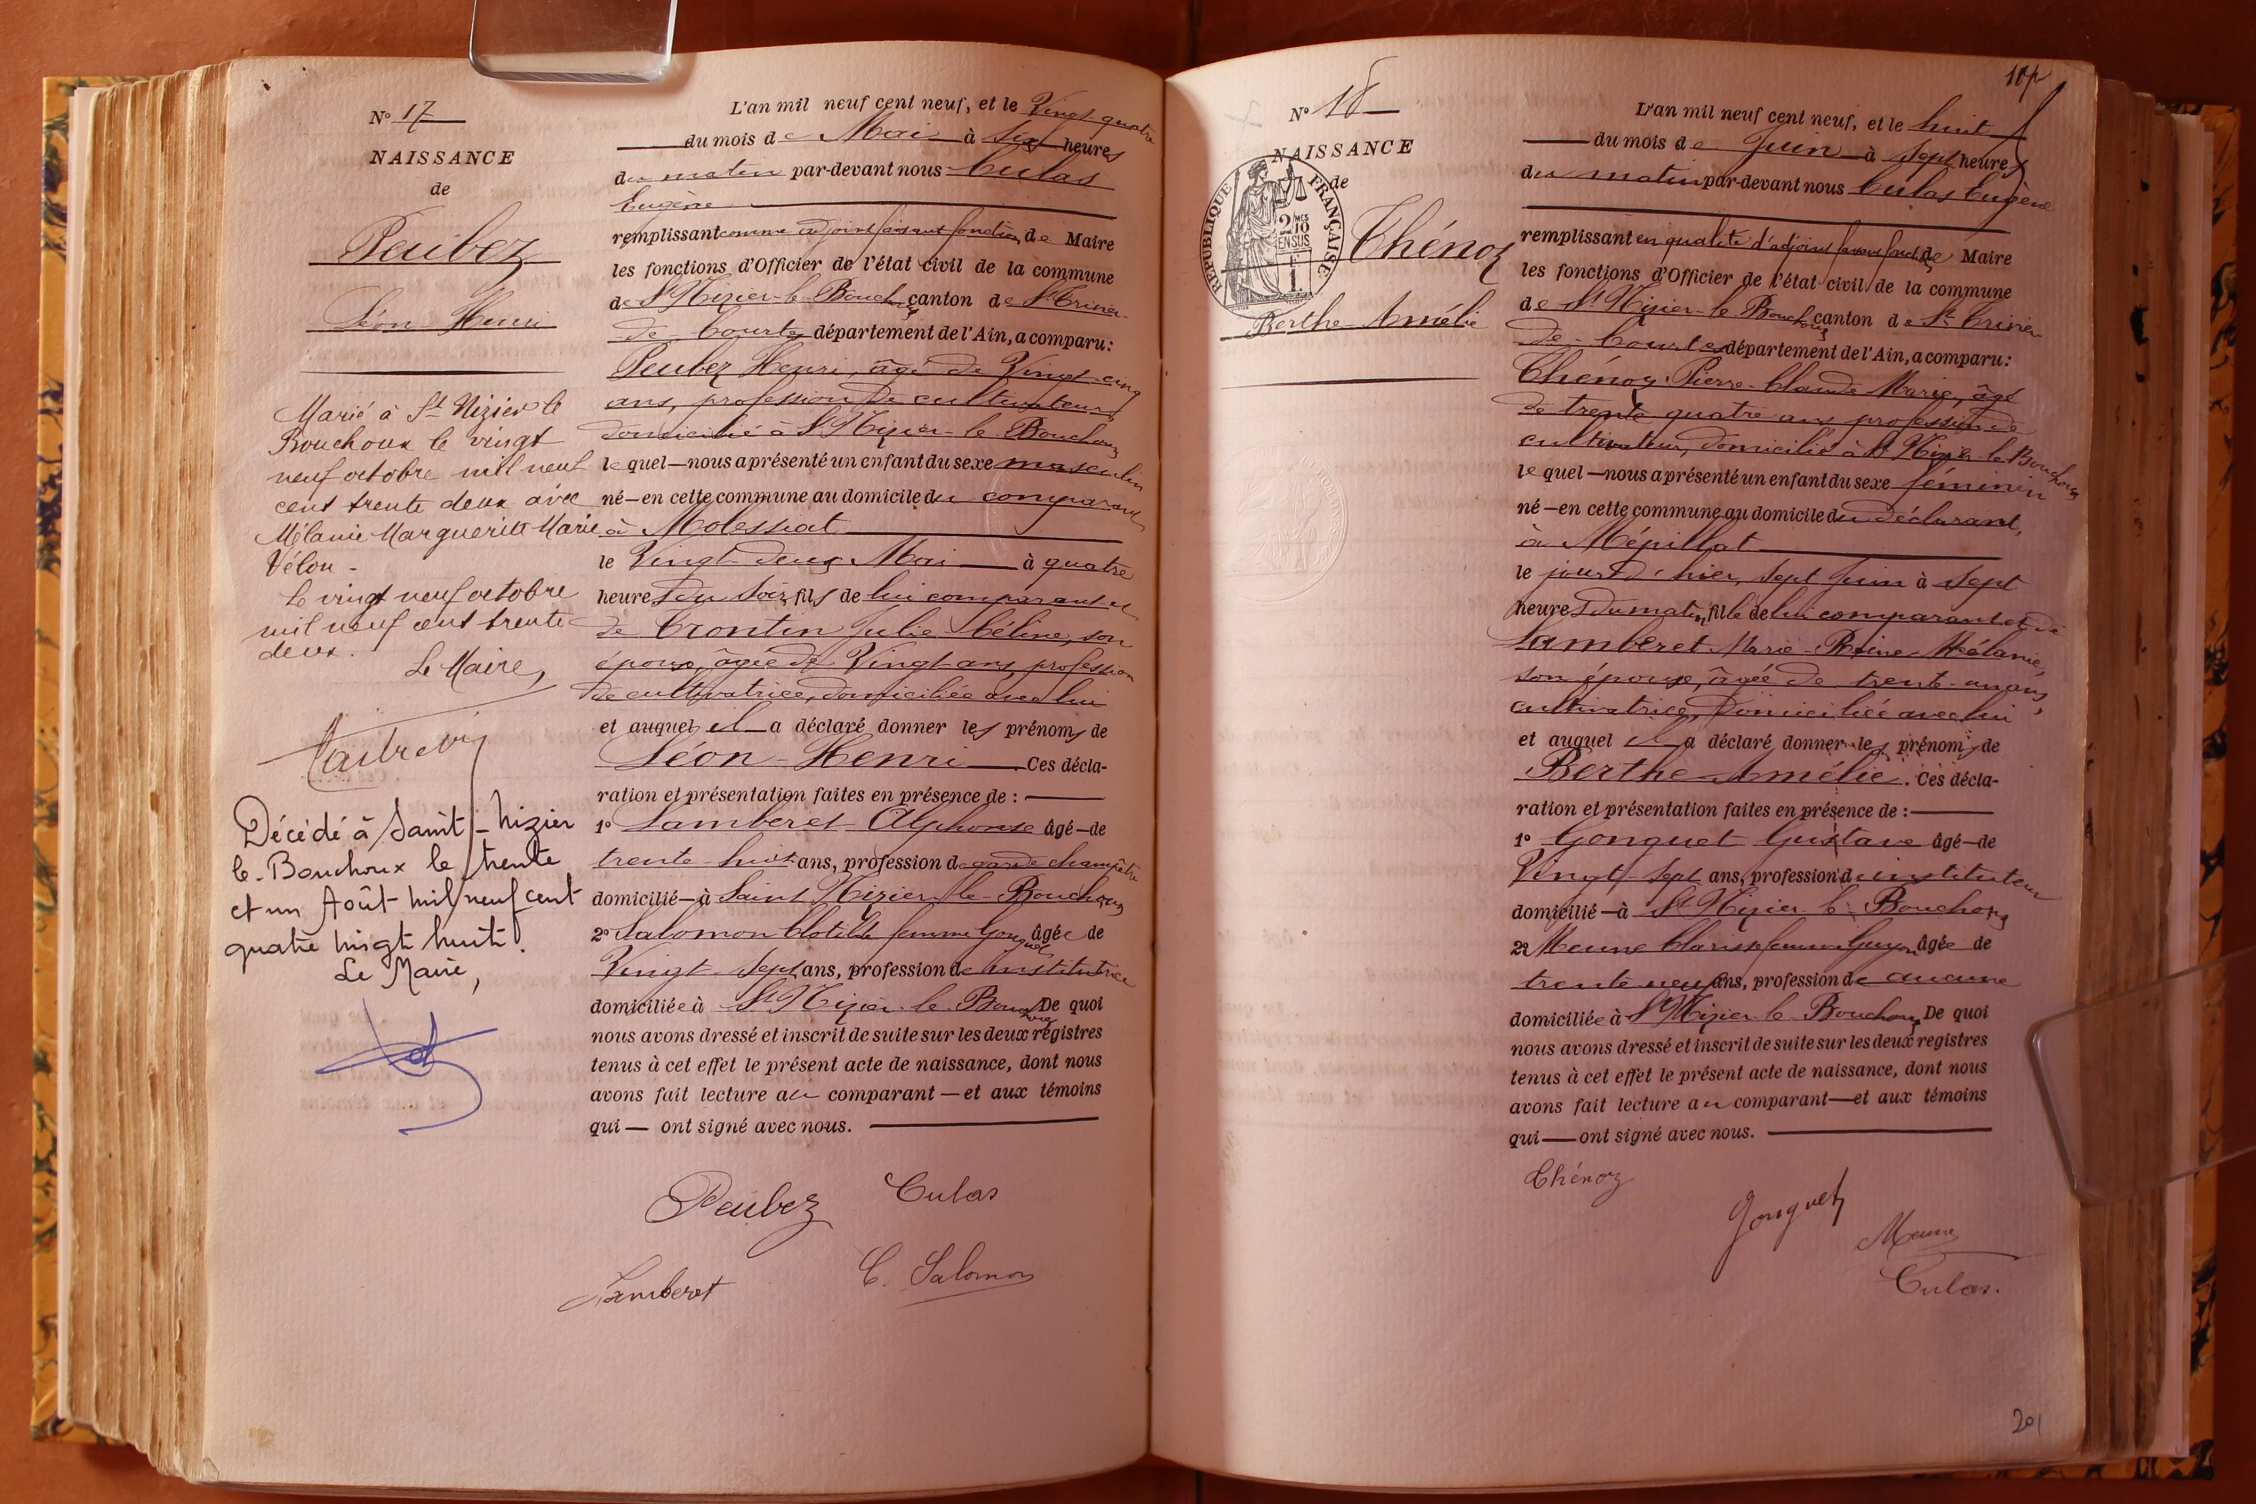 N° 17
NAISSANCE
de
Peubez
Léon Henri
Marié à St Nizier le
Bouchoux le vingt
neuf octobre mil neuf
cent trente deux avec
Mélanie Marguerite Marie
Vélon -
Le vingt neuf octobre
mil neuf cent trente
deux.
Le Maire,
Décédé à Saint-Nizier
le-Bouchoux le trente
et un Août mil neuf cent
quatre vingt huit.
Le Maire,
L'an mil neuf cent neuf, et le Vingt quatre
du mois de Mai à six heures
du matin par-devant nous Culas
Eugène
remplissant comme adjoint faisant fonction de Maire
les fonctions d'Officier de l'état civil de la commune
de St Nizier-le-Bouchx canton de St Trivier-
de-Courtes département de l'Ain, a comparu :
Peubez Henri, âgé de Vingt-cinq
ans, profession de cultivateur,
domicilié à St Nizier-le-Bouchoux
lequel — nous a présenté un enfant du sexe masculin
né — en cette commune au domicile du comparant
à Molessiat
le Vingt-deux Mai à quatre
heures du soir, fils de lui comparant et
de Trontin Julie Céline, son
épouse, âgée de Vingt ans, profession
de cultivatrice, domiciliée avec lui
et auquel il a déclaré donner les prénoms de
Léon-Henri. Ces décla-
ration et présentation faites en présence de :
1° Lamberet Alphonse âgé — de
trente-huit ans, profession de garde champêtre
domicilié — à Saint Nizier-le-Bouchoux
2° Salomon Clotilde femme Gonguet âgée de
Vingt-sept ans, profession de institutrice
domiciliée à St Nizier-le-Bouchoux De quoi
nous avons dressé et inscrit de suite sur les deux registres
tenus à cet effet le présent acte de naissance, dont nous
avons fait lecture au comparant — et aux témoins
qui — ont signé avec nous.
Peubez Culas
Lamberet C. Salomon
N° 18
NAISSANCE
de
RÉPUBLIQUE FRANÇAISE
2/10
EN SUS
1 F.
Thénoz
Berthe Amélie
L'an mil neuf cent neuf, et le huit
du mois de Juin à sept heures
du matin par-devant nous Culas Eugène
remplissant en qualité d'adjoint faisant fonct. de Maire
les fonctions d'Officier de l'état civil de la commune
de St Nizier-le-Bouchoux canton de St Trivier
de-Courtes département de l'Ain, a comparu :
Thénoz Pierre-Claude Marie, âgé
de trente quatre ans profession de
cultivateur, domicilié à St Nizier-le-Bouchoux
lequel — nous a présenté un enfant du sexe féminin
né — en cette commune au domicile du déclarant,
à Mépillat
le jour d'hier, sept Juin à sept
heures du matin, fille de lui comparant et de
Lamberet Marie-Reine-Mélanie,
son épouse, âgée de trente-un ans,
cultivatrice, domiciliée avec lui
et auquel il a déclaré donner les prénoms de
Berthe-Amélie. Ces décla-
ration et présentation faites en présence de :
1° Gonguet Gustave âgé — de
Vingt-sept ans, profession d'instituteur
domicilié — à St Nizier-le-Bouchoux
2° Meune Clarisse femme Guyon âgée de
trente neuf ans, profession de aucune
domiciliée à St Nizier-le-Bouchoux De quoi
nous avons dressé et inscrit de suite sur les deux registres
tenus à cet effet le présent acte de naissance, dont nous
avons fait lecture au comparant — et aux témoins
qui — ont signé avec nous.
Thénoz
Gonguet
Meune
Culas.
201